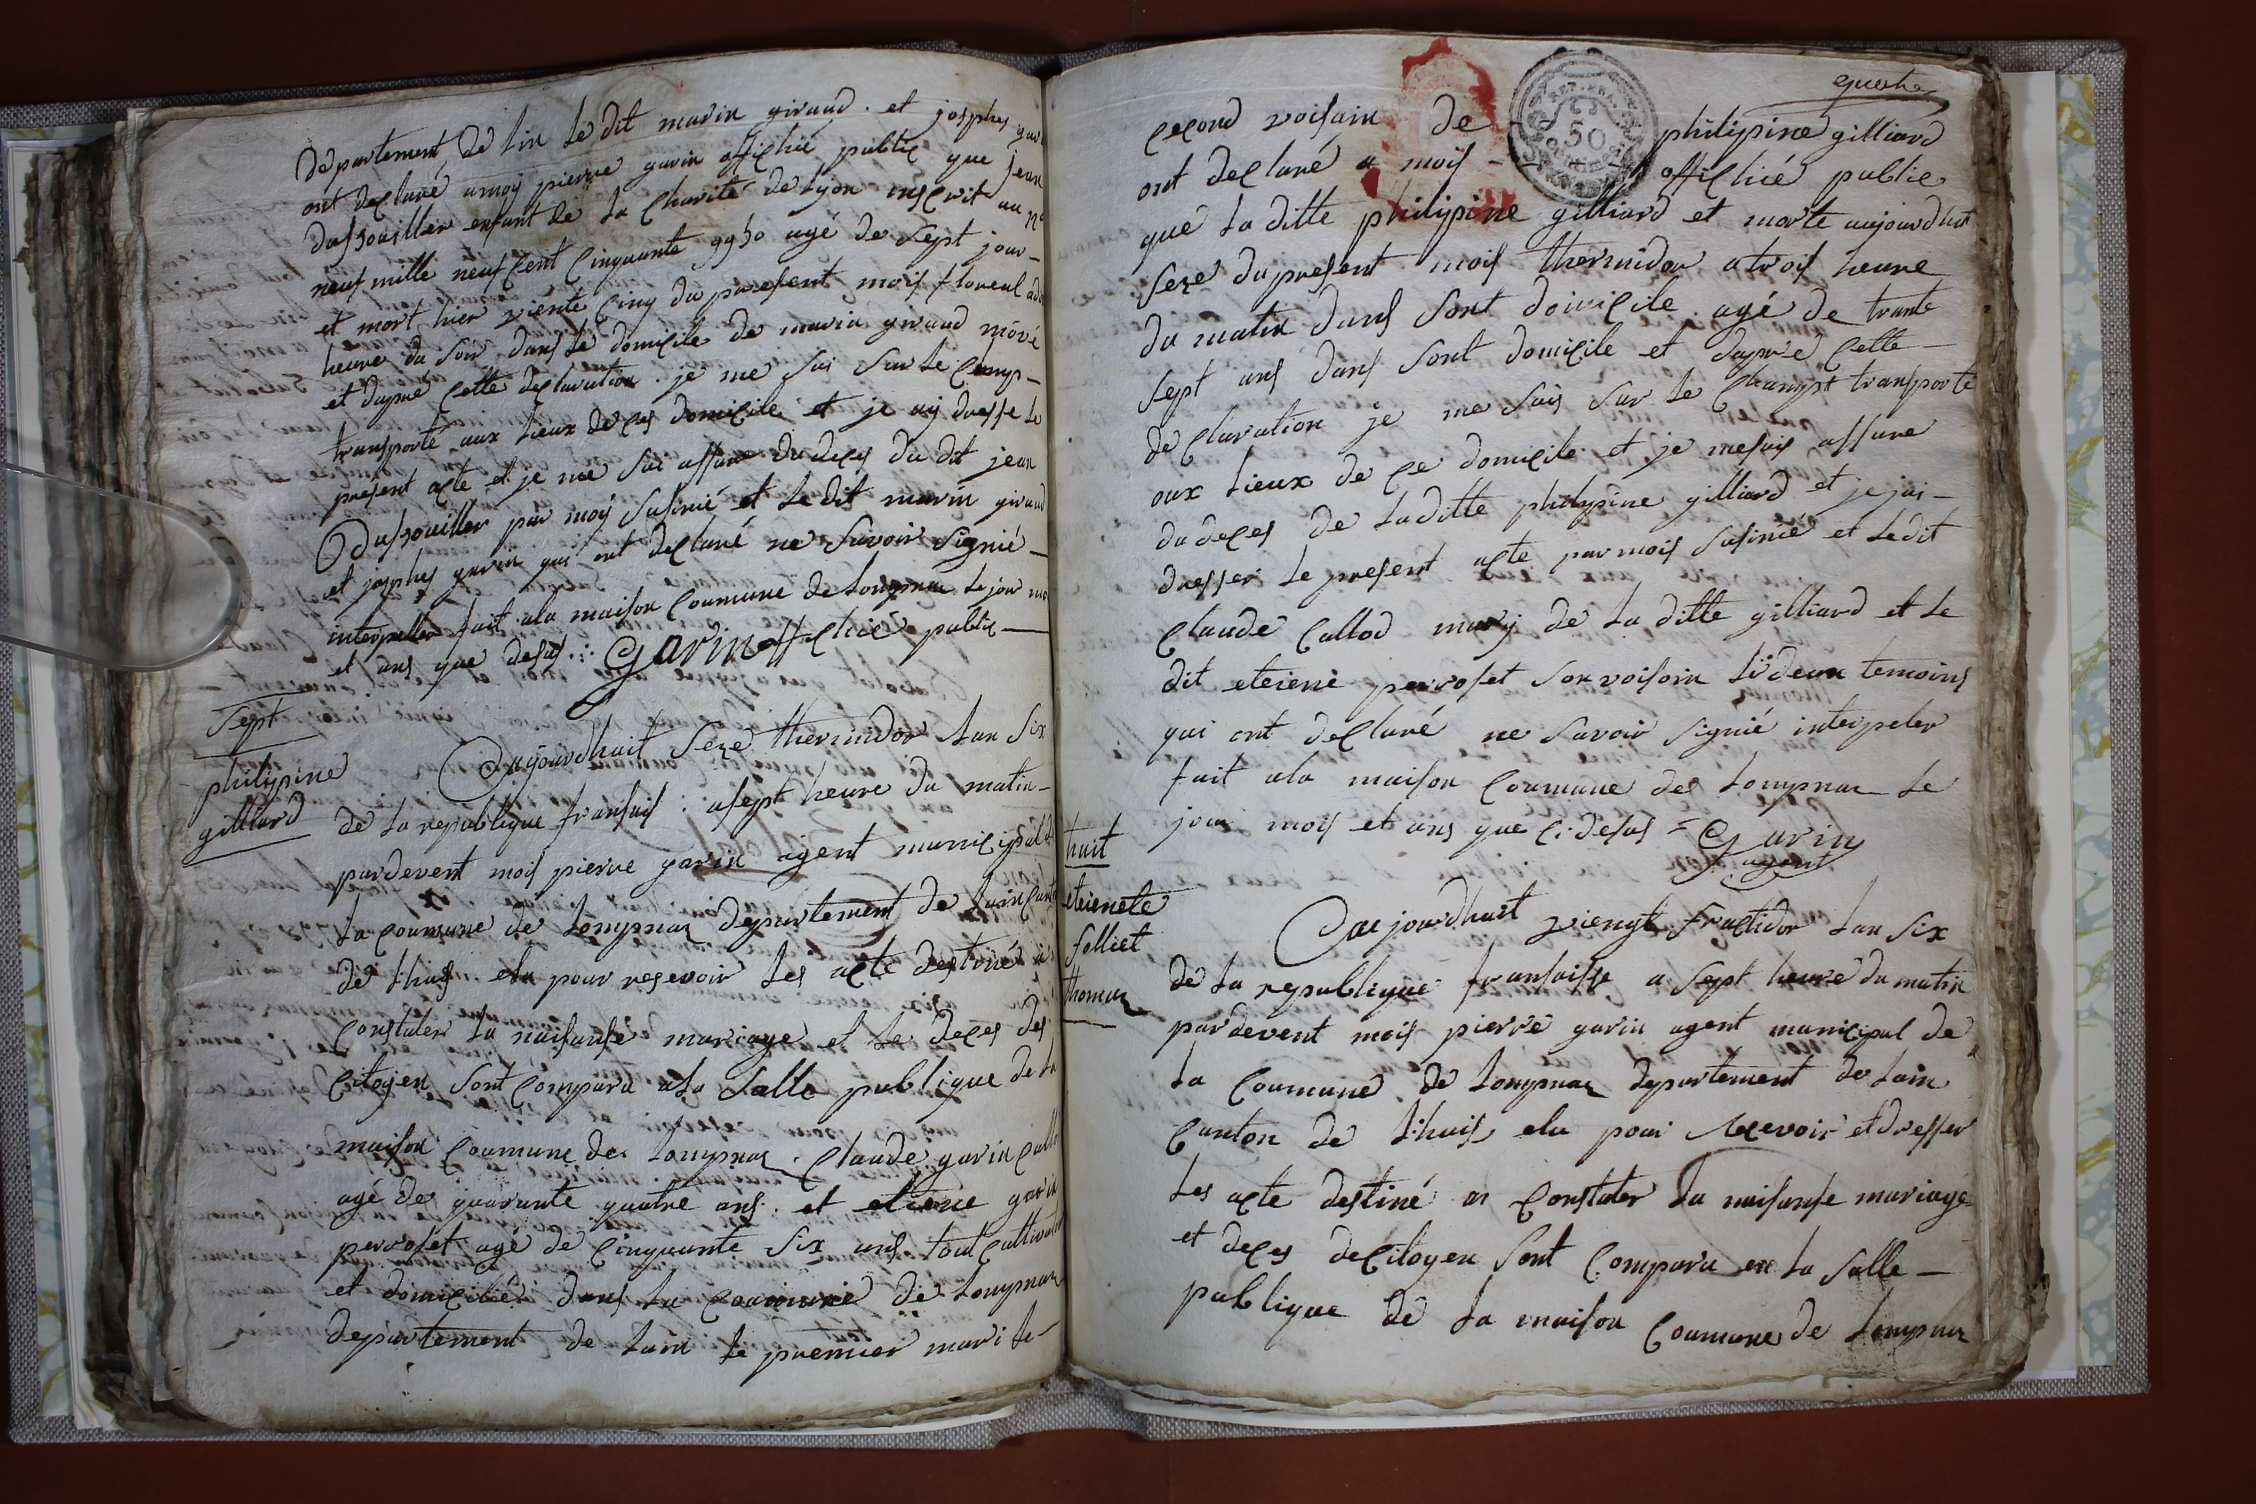 departement de lin le dit marin giraud . et josphes
ont declaré amoij pierre garin offichié public que jean
dushouiller enfant de la Charité de Lyon inscrit au n°
neuf mille neuf cent cinquante 9950 agé de sept jour
et mort hier viente cinq du paresent mois floreal
heure du soir dans le domicile de marin giraud
et dapré cette declaration . je me sui sur le Camp
transporté aux lieux de ces domicile et je aij dresse le
present acte et je me sui assure du deces du dit jean
Dushouiller par moij susinié et le dit marin giraud
et josphes garin qui ont declaré ne savoir signié
interpeller fait ala maison Coumune de Lompnaz le jour
et ans que desus . garin offichié public
Sept
philipine
gilliard
aujourdhuit seze thermidor lan six
de la republique fransais : asept heure du matin
pardevent mois pierre garin agent municipal
la coumune de Lompnaz departement de lain
de lhuis elu pour resevoir les acte destiné a
Constater la naisanse mariage et le deces des
Citoyen sont compara ala salle publique de la
maison Coumune des Lompnaz . Claude garin
agé des quarante quatre ans . et etiene garin
perroset agé de cinquante six ans tout
et domicilié dans la coumune de Lompnaz
departement de lain le premier mari le
quatre
cecond voisain de philipine gilliard
ont declaré a mois offichié public
que la ditte philipine gilliard et morte aujourdhuit
seze du present mois thermidor atrois heure
du matin dans sont doivicile . agé de trante
sept ans dans sont domicile et dapré cette
declaration je me suis sur le Champt transporté
aux lieux de ce domicile et je mesuis assure
du deces de laditte philipine gilliard et je jai
dresser le present acte par mois susinié et ledit
Claude Callod marij de la ditte gilliard et le
dit eteiene perroset son voisain deux temoins
qui ont declaré ne savoir signié interpeler
fait ala maison Coumune des Lompnaz le
jour mois et ans que ci desus = garin
agent
huit
eteienete
folliet
thomaz
aujourdhuit viengt fructidor lan six
de la republique fransaisse a sept heure du matin
pardevent mois pierre garin agent municipal de
la Coumune de Lompnaz departement de lain
Canton de lhuis elu pour recevoir et dresser
les acte destiné a Constater la naisanse mariage
et deces decitoyen sont Compara en la salle
publique de la maison Coumune de Lompnaz